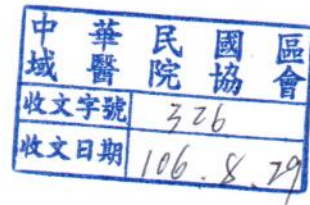 中華民國區
域醫院協會
收文字號 326
收文日期 106.8.29